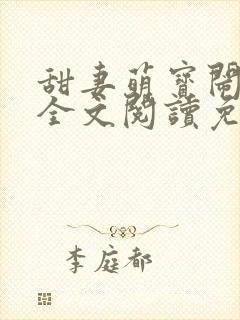 甜妻萌寶鬧
全文閱讀免
李庭都